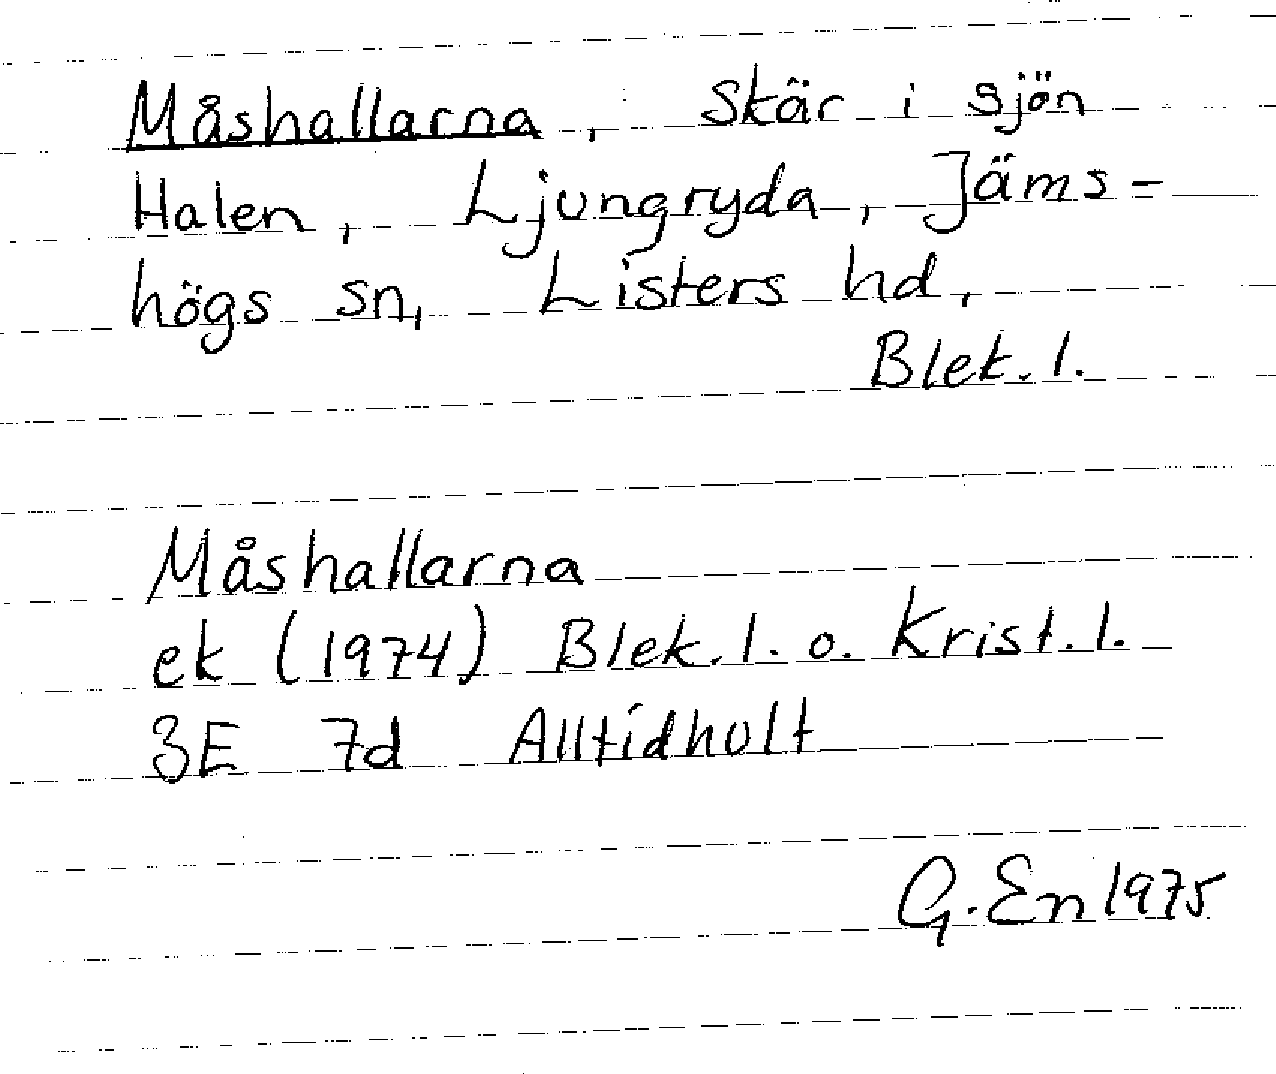 Måshallarna, Skär i sjön
Halen, Ljungryda, Jäms=
högs sn, Listers hd,
Blek. l.
Måshallarna
ek (1974) Blek. l. o. Krist. l.
3E 7d Alltidhult
G. En 1975